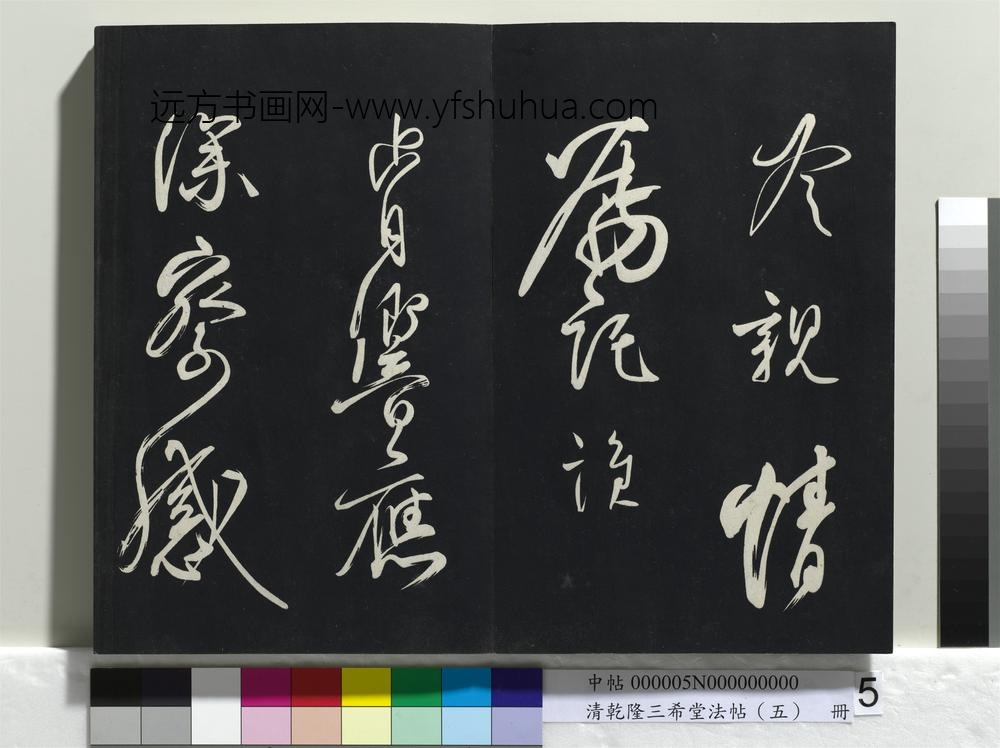 远方书画网-www.yfshuhua.com
親情
須
響應
深察感
中帖 000005N000000000
清乾隆三希堂法帖（五） 冊
5